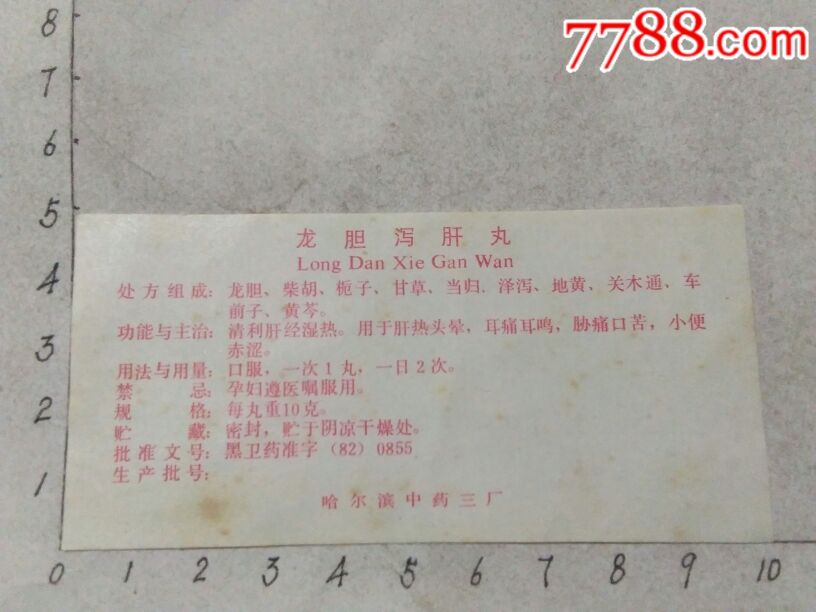 7788.com
龙胆泻肝丸
Long Dan Xie Gan Wan
处方组成：龙胆、柴胡、栀子、甘草、当归．泽泻、地黄、关木通、车
前子、黄芩。
功能与主治：清利肝经湿热。用于肝热头晕，耳痛耳鸣，胁痛口苦，小便
赤涩。
用法与用量：口服，一次1丸，一日2次。
禁忌：孕妇遵医嘱服用。
规格：每丸重10克。
贮藏：密封，贮于阴凉干燥处。
批准文号：黑卫药准字（82）0855
生产批号：
哈尔滨中药三厂
8
7
6
5
4
3
2
1
0 1 2 3 4 5 6 7 8 9 10